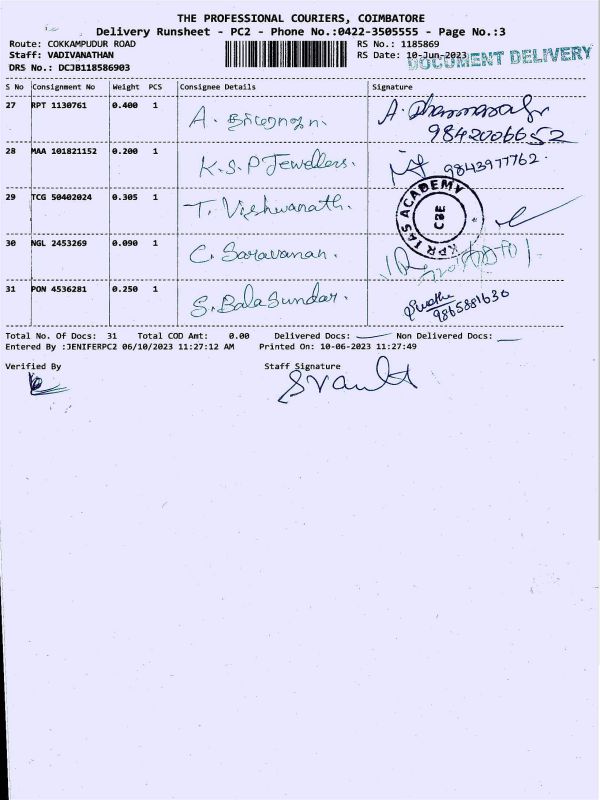 THE PROFESSIONAL COURIERS, COIMBATORE
Delivery Runsheet - PC2 - Phone No.:0422-3505555 - Page No.:3
Route: COKKAMPUDUR ROAD RS No.: 1185869
Staff: VADIVANATHAN RS Date: 10-Jun-2023 DOCUMENT DELIVERY
DRS No.: DCJB118586903
S No Consignment No Weight PCS Consignee Details Signature
27 RPT 1130761 0.400 1 A.
9842006652
28 MAA 101821152 0.200 1 K.S.P Jewellers. 9843977762.
29 TCG 50402024 0.305 1 T. Vishwanath. KPR IAS ACADEMY CBE
30 NGL 2453269 0.090 1 C. Saravanan.
31 PON 4536281 0.250 1 S. Bala Sundar. Swathi
9865881630
Total No. Of Docs: 31 Total COD Amt: 0.00 Delivered Docs: Non Delivered Docs:
Entered By :JENIFERPC2 06/10/2023 11:27:12 AM Printed On: 10-06-2023 11:27:49
Verified By Staff Signature